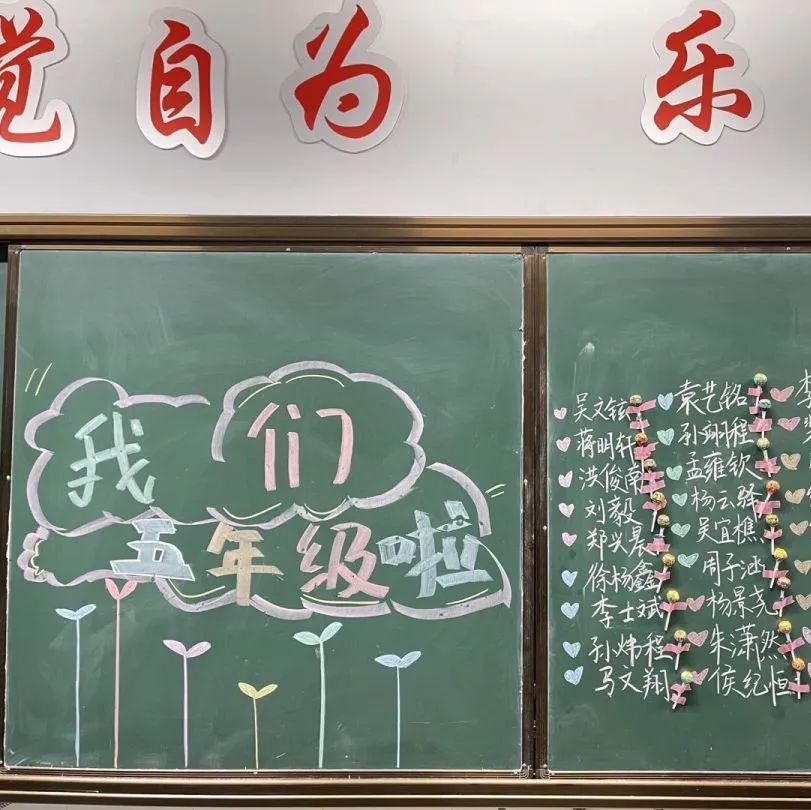 觉自为 乐
我们
五年级啦
吴文铉 袁艺铭 李
蒋明轩 孙翊程
洪俊南 孟雍钦
刘毅 杨云驿
郑兴晨 吴宜樵
徐杨鑫 周子涵
李士斌 杨景尧
孙炜程 朱潇然
马文翔 侯纪恒